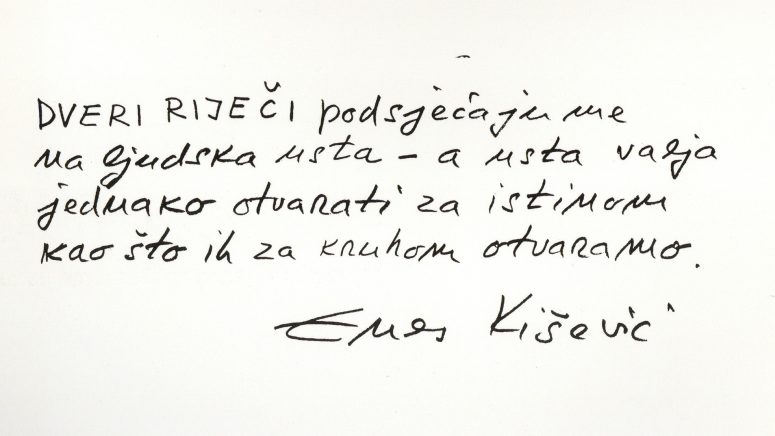 DVERI RIJEČI podsjećaju me
na ljudska usta – a usta valja
jednako otvarati za istinom
kao što ih za kruhom otvaramo.
Enes Kišević